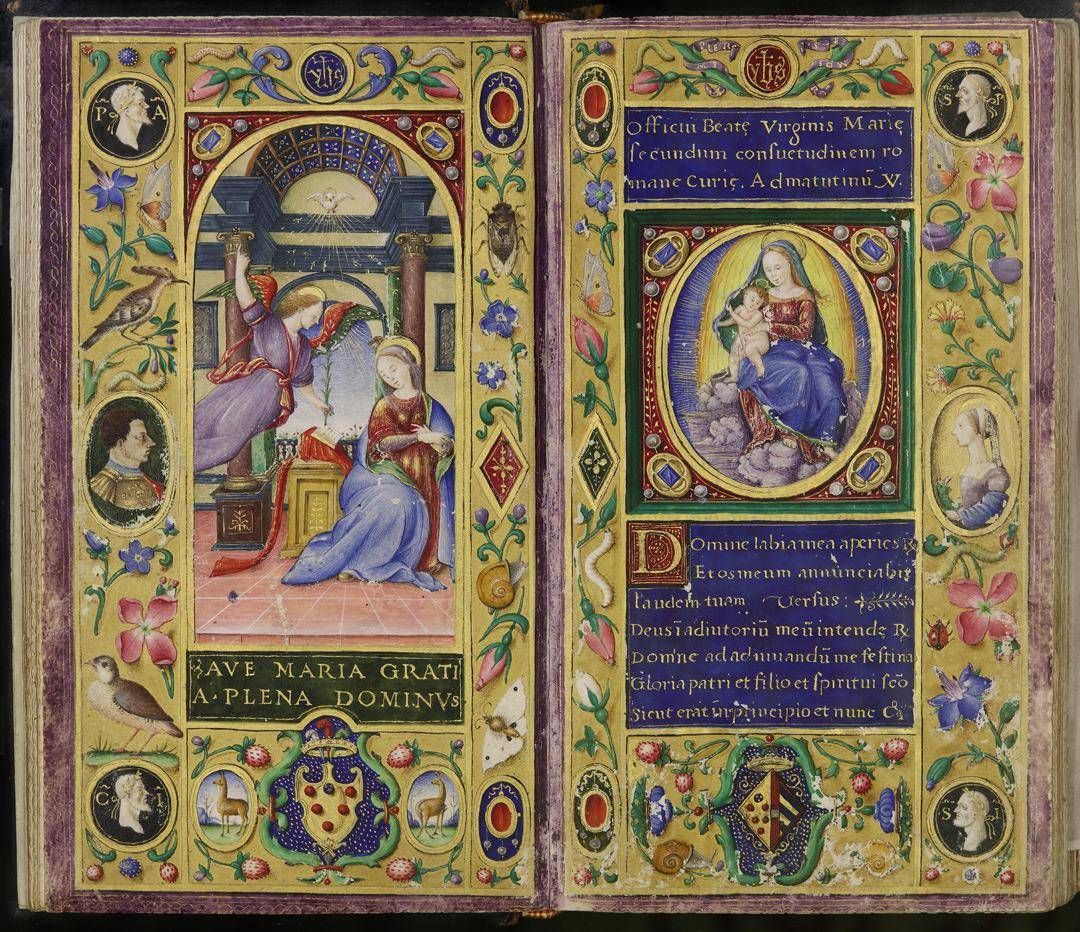 yhs
P A
AVE MARIA GRATI
A · PLENA DOMINVS
C
yhs
S I
Officiū Beatę Virginis Marię
secundum consuetudinem ro
mane Curię. Ad matutinū V.
Domine labia mea aperies R
Et os meum annūnciabit
laudem tuam Versus :
Deus ī adiutoriū meū intende R
Domine ad adiuuandū me festina
Gloria patri et filio et spiritui scō
Sicut erat in principio et nunc &
S I